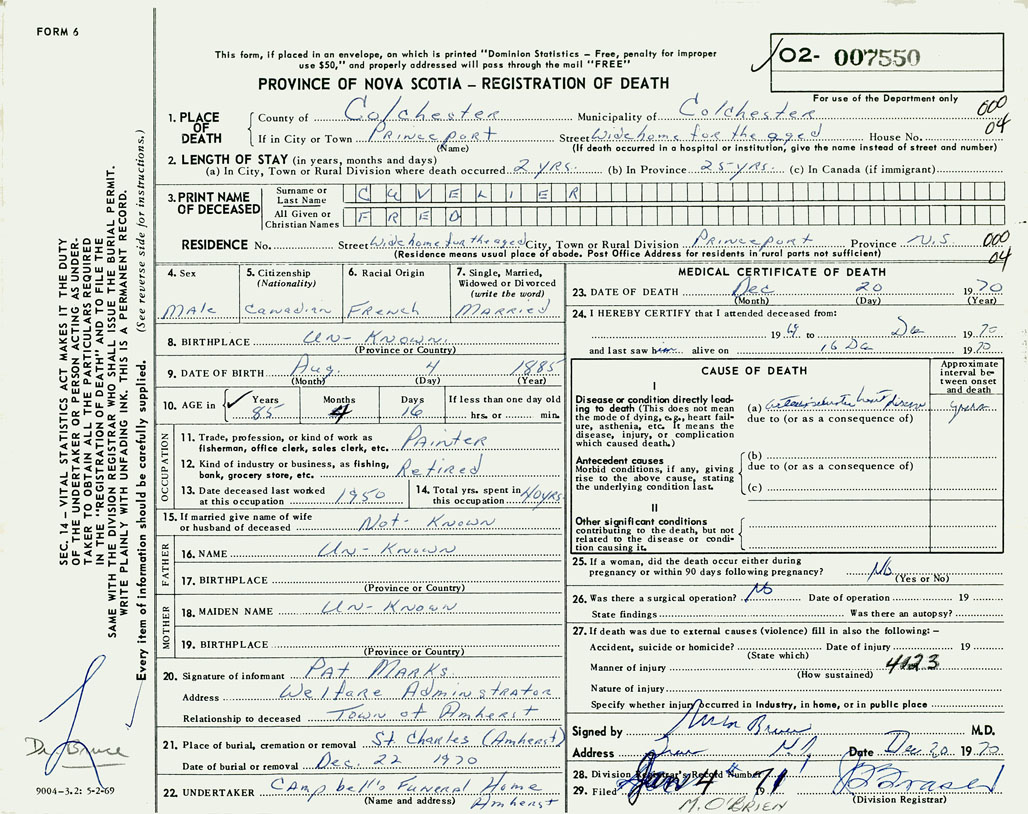 FORM 6
This form, if placed in an envelope, on which is printed "Dominion Statistics – Free, penalty for improper
use $50," and properly addressed will pass through the mail "FREE"
PROVINCE OF NOVA SCOTIA – REGISTRATION OF DEATH
02- 007550
For use of the Department only
000
04
1. PLACE OF DEATH
County of Colchester Municipality of Colchester
If in City or Town Princeport Street Widehome for the aged House No.
(Name) (If death occurred in a hospital or institution, give the name instead of street and number)
2. LENGTH OF STAY (in years, months and days)
(a) In City, Town or Rural Division where death occurred 2 yrs. (b) In Province 25 yrs. (c) In Canada (if immigrant)
3. PRINT NAME OF DECEASED
Surname or Last Name CUVELIER
All Given or Christian Names FRED
RESIDENCE No. Street Widehome for the aged City, Town or Rural Division Princeport Province N.S. 000
(Residence means usual place of abode. Post Office Address for residents in rural parts not sufficient) 04
4. Sex
Male
5. Citizenship
(Nationality)
Canadian
6. Racial Origin
French
7. Single, Married, Widowed or Divorced
(write the word)
Married
8. BIRTHPLACE Un-Known.
(Province or Country)
9. DATE OF BIRTH Aug. 4 1885
(Month) (Day) (Year)
10. AGE in Years Months Days If less than one day old
85 4 16 hrs. or min.
OCCUPATION
11. Trade, profession, or kind of work as
fisherman, office clerk, sales clerk, etc. Painter
12. Kind of industry or business, as fishing,
bank, grocery store, etc. Retired
13. Date deceased last worked
at this occupation 1950
14. Total yrs. spent in
this occupation 40yrs
15. If married give name of wife
or husband of deceased Not-Known
FATHER
16. NAME Un-Known
17. BIRTHPLACE
(Province or Country)
MOTHER
18. MAIDEN NAME Un-Known
19. BIRTHPLACE
(Province or Country)
20. Signature of informant Pat Marks
Address Welfare Administrator
Relationship to deceased Town of Amherst
21. Place of burial, cremation or removal St Charles (Amherst)
Date of burial or removal Dec. 22 1970
22. UNDERTAKER Campbell's Funeral Home
(Name and address) Amherst
MEDICAL CERTIFICATE OF DEATH
23. DATE OF DEATH Dec 20 1970
(Month) (Day) (Year)
24. I HEREBY CERTIFY that I attended deceased from:
1969 to Dec 1970
and last saw him alive on 16 Dec 1970
CAUSE OF DEATH
Approximate interval between onset and death
I
Disease or condition directly leading
to death (This does not mean
the mode of dying, e.g., heart failure,
asthenia, etc. It means the
disease, injury, or complication
which caused death.)
(a) heart disease years
due to (or as a consequence of)
Antecedent causes
Morbid conditions, if any, giving
rise to the above cause, stating
the underlying condition last.
(b)
due to (or as a consequence of)
(c)
II
Other significant conditions
contributing to the death, but not
related to the disease or condition
causing it.
25. If a woman, did the death occur either during
pregnancy or within 90 days following pregnancy? No
(Yes or No)
26. Was there a surgical operation? No Date of operation 19
State findings Was there an autopsy?
27. If death was due to external causes (violence) fill in also the following: –
Accident, suicide or homicide? Date of injury 19
(State which)
Manner of injury 4123
(How sustained)
Nature of injury
Specify whether injury occurred in Industry, in home, or in public place
Signed by M.D.
Address Date Dec 20 1970
28. Division Registrar's Record Number
29. Filed Jan 4 1971
(Division Registrar)
M. O'BRIEN
SEC. 14 – VITAL STATISTICS ACT MAKES IT THE DUTY
OF THE UNDERTAKER OR PERSON ACTING AS UNDERTAKER
TO OBTAIN ALL THE PARTICULARS REQUIRED
IN THE "REGISTRATION OF DEATH" AND TO FILE THE
SAME WITH THE DIVISION REGISTRAR WHO SHALL ISSUE THE BURIAL PERMIT.
WRITE PLAINLY WITH UNFADING INK. THIS IS A PERMANENT RECORD.
Every item of information should be carefully supplied. (See reverse side for instructions.)
Dr. Bruce
9004–3.2: 5-2-69